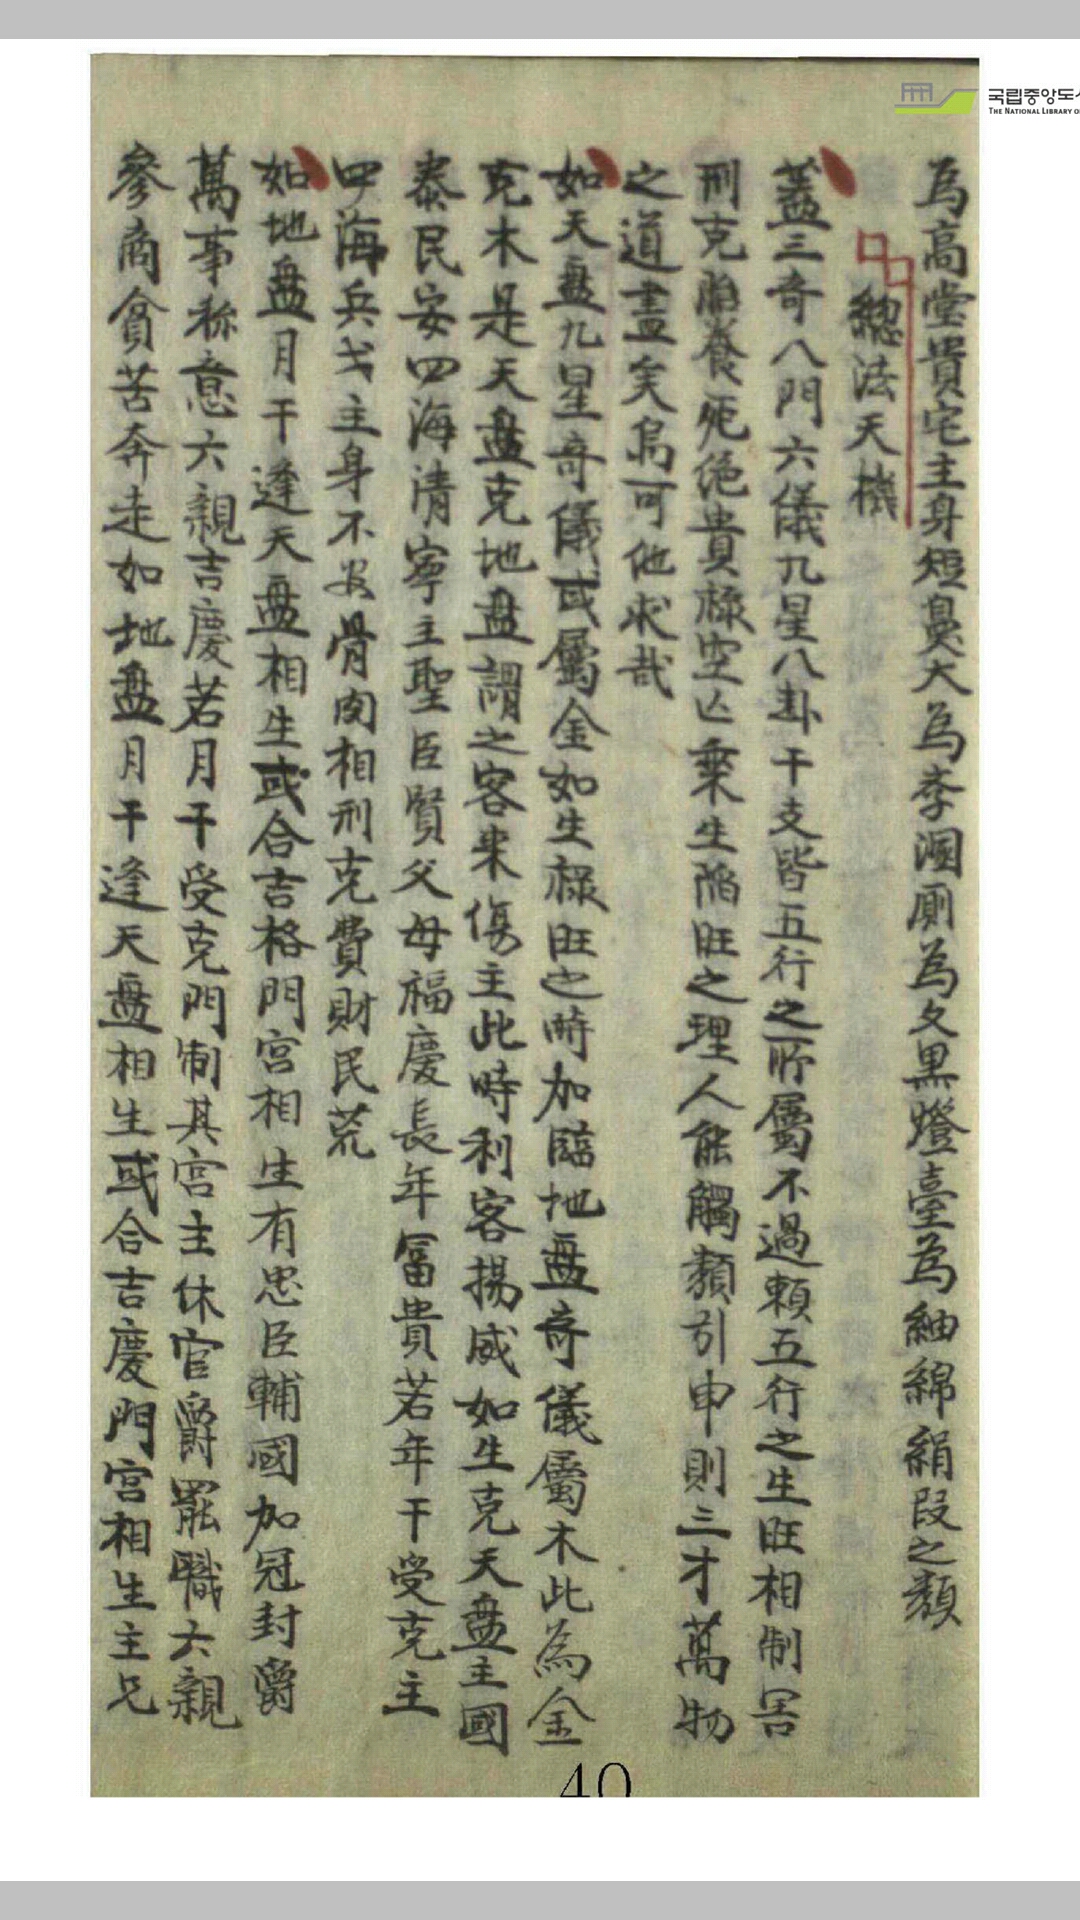 為高堂貴宅主身短鼻大為李溷厠為文黒燈臺為紬綿絹段之類
總法天機
蓋三奇八門六儀九星八卦干支皆五行之所屬不過賴五行之生旺相制害
刑克胎養死絶貴祿空亡乘生陷旺之理人能觸類引申則三才萬物
之道盡矣烏可他求哉
如天盤九星奇儀或屬金如生祿旺之時加臨地盤奇儀屬木此為金
克木是天盤克地盤謂之客来傷主此時利客揚威如生克天盤主國
泰民安四海清寧主聖臣賢父母福慶長年冨貴若年干受克主
四海兵戈主身不安骨肉相刑克費財民荒
如地盤月干逢天盤相生或合吉格門宮相生有忠臣輔國加冠封爵
萬事称意六親吉慶若月干受克門制其宮主休官爵罷職六親
參商貧苦奔走如地盤月干逢天盤相生或合吉慶門宮相生主兄
국립중앙도서
THE NATIONAL LIBRARY O
40